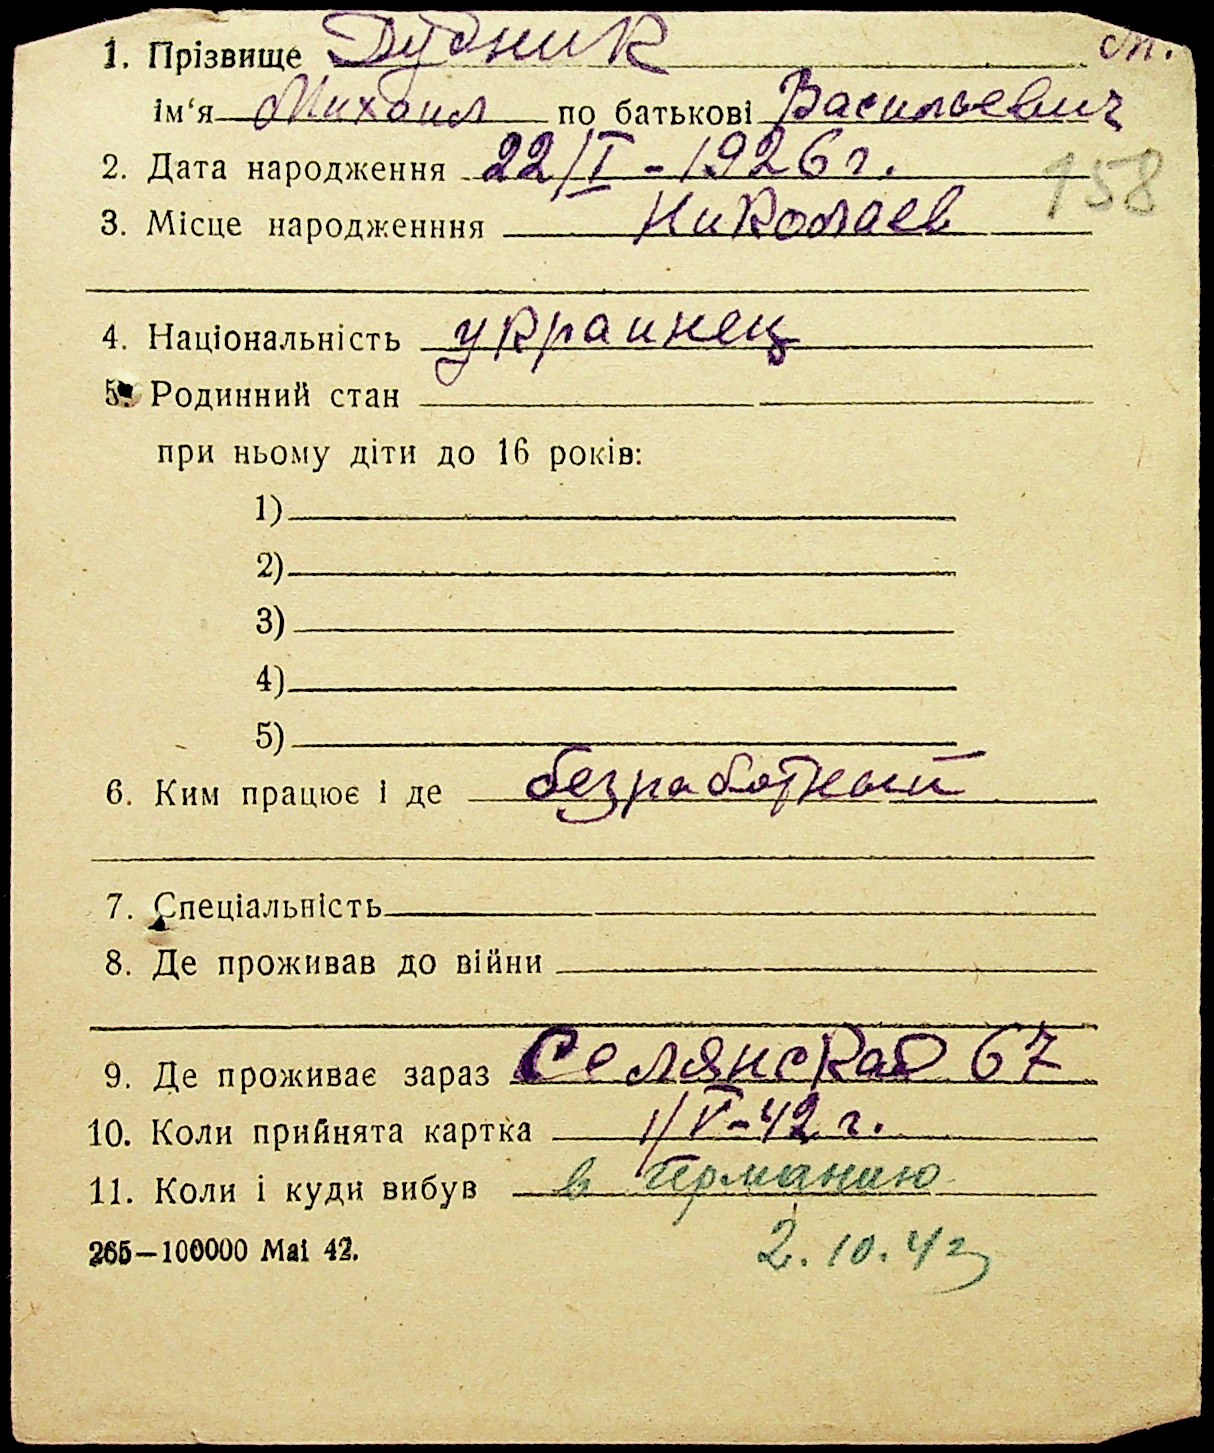 1. Прізвище Дудник м.
ім‘я Михаил по батькові Васильевич
2. Дата народження 22/I - 1926 г.
158
3. Місце народженння Николаев
4. Національність украинец
5. Родинний стан
при ньому діти до 16 років:
1)
2)
3)
4)
5)
6. Ким працює і де безработный
7. Спеціальність
8. Де проживав до війни
9. Де проживає зараз Селянская 67
10. Коли прийнята картка 1/V-42 г.
11. Коли і куди вибув в Германию
2.10.42
265—100000 Mai 42.